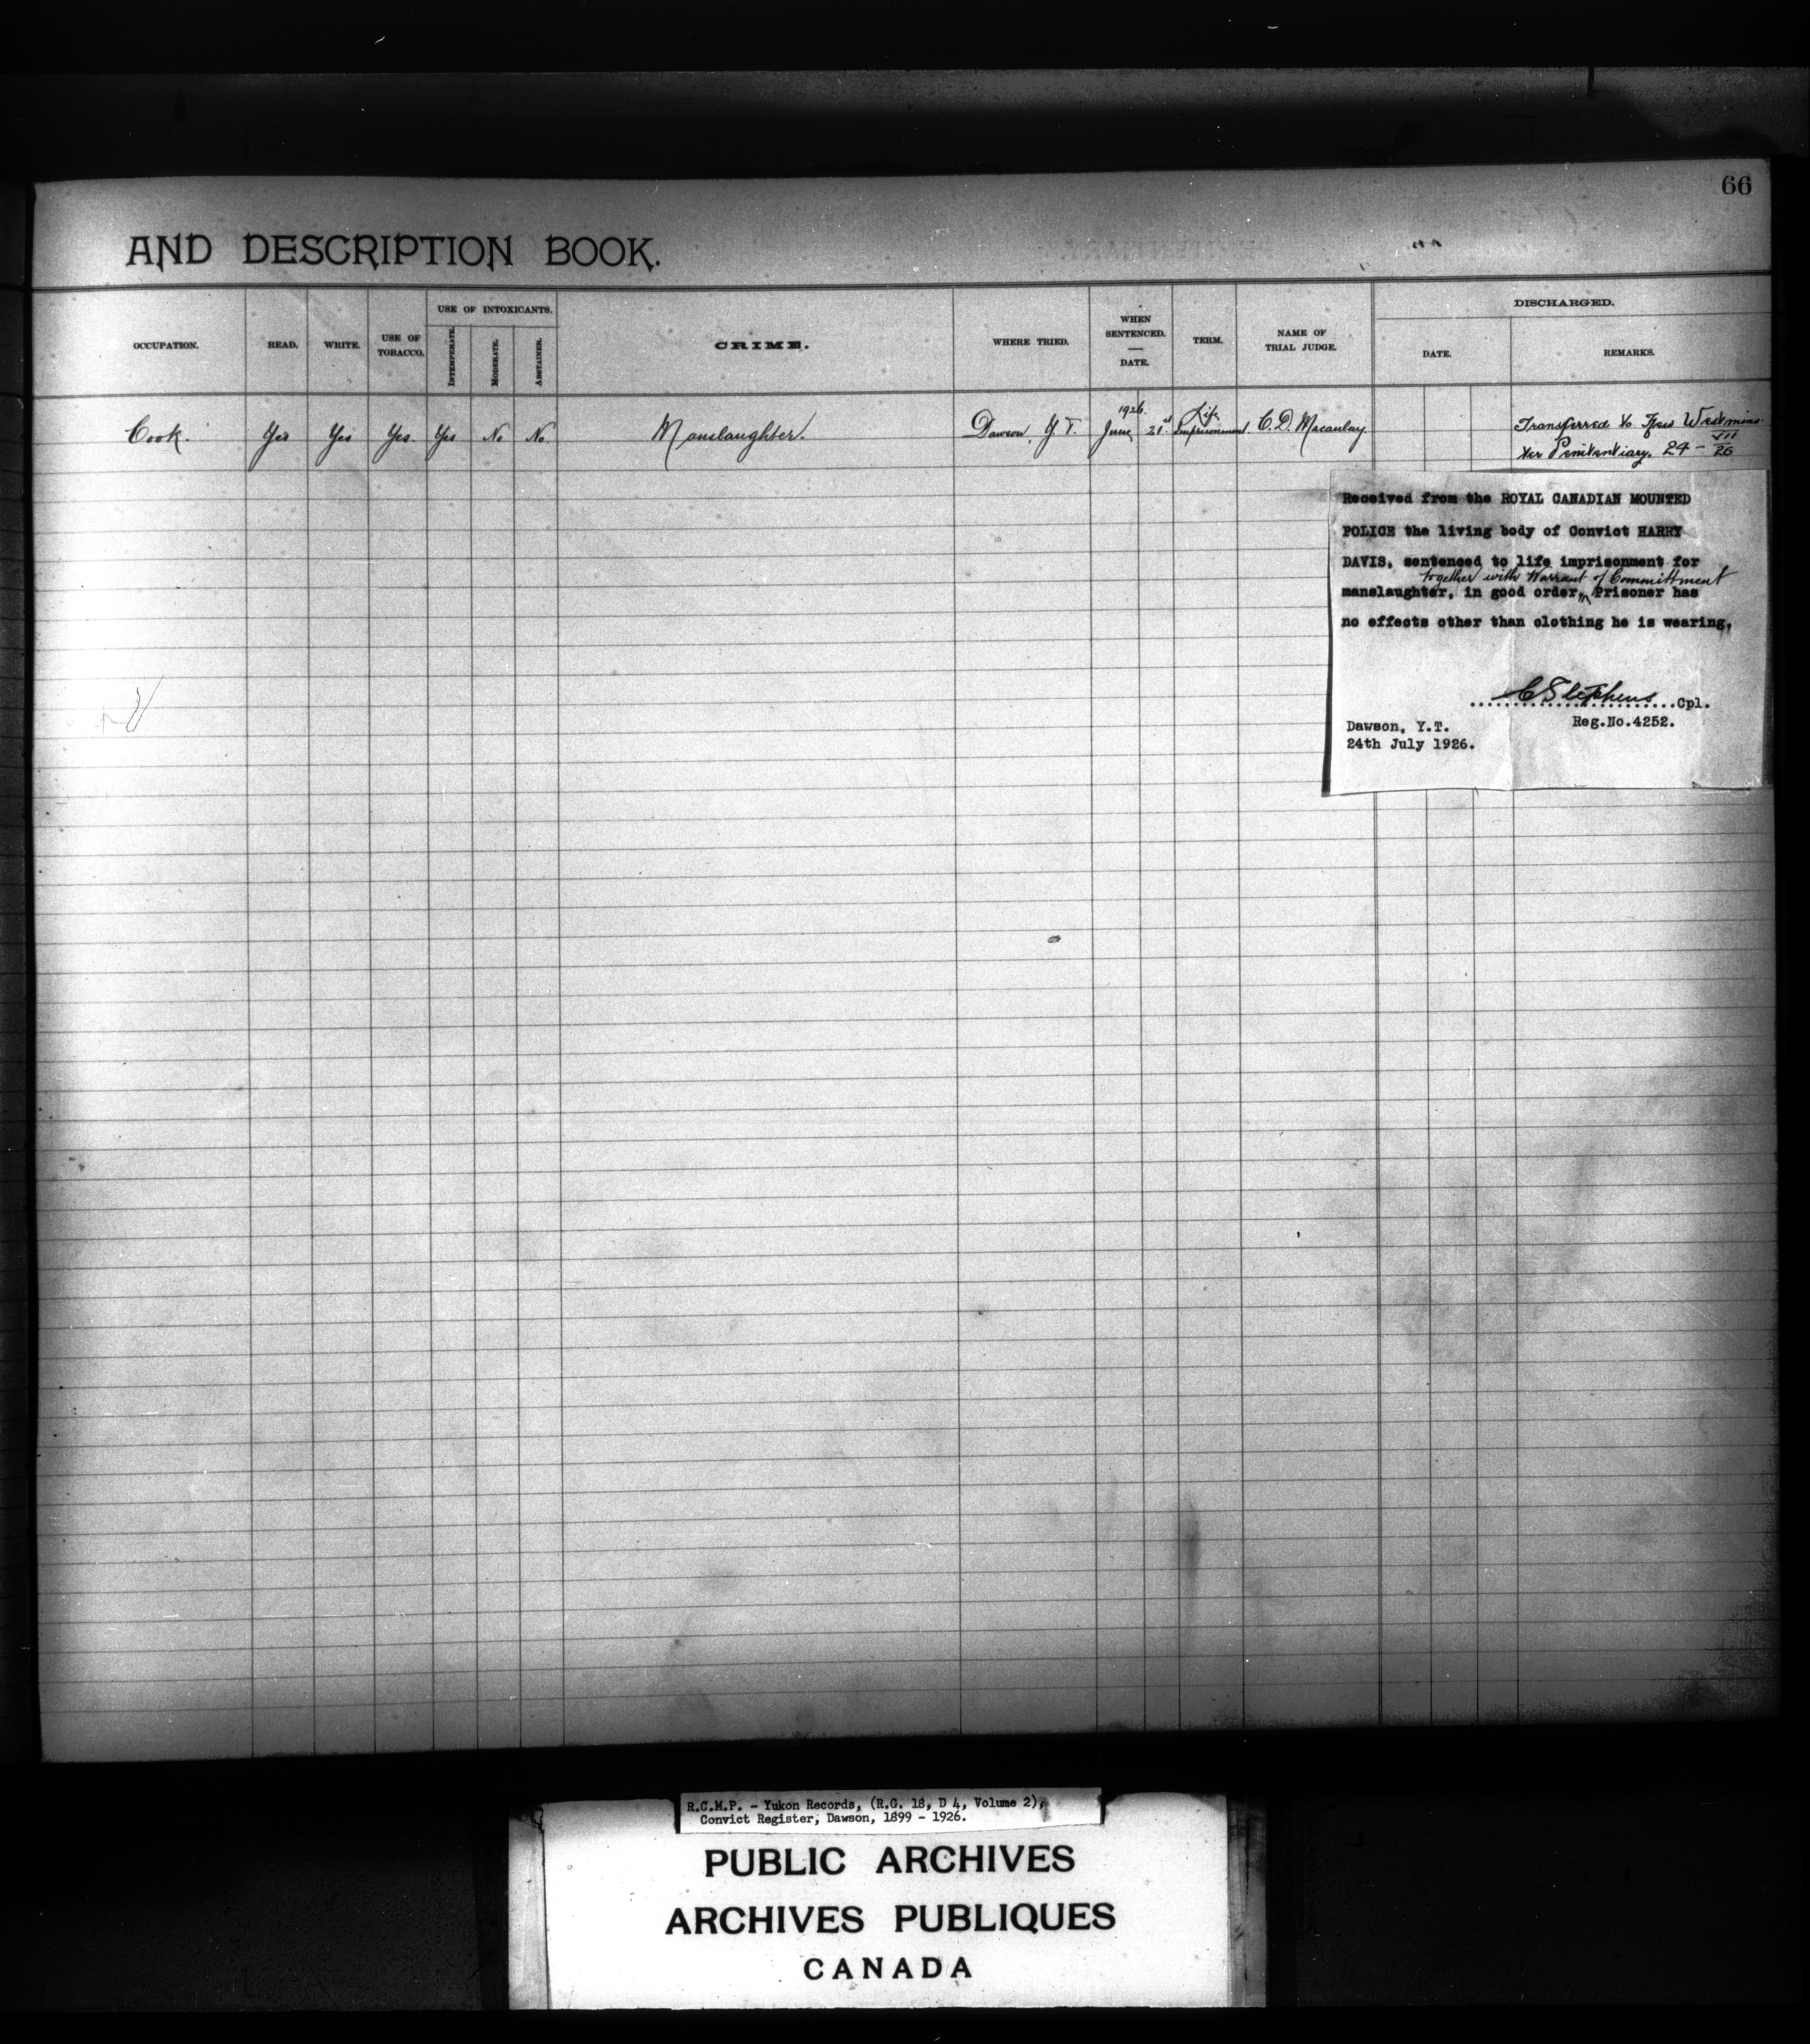 66
AND DESCRIPTION BOOK.
OCCUPATION. READ. WRITE. USE OF TOBACCO. USE OF INTOXICANTS. INTEMPERATE. MODERATE. ABSTAINER. CRIME. WHERE TRIED. WHEN SENTENCED. — DATE. TERM. NAME OF TRIAL JUDGE. DISCHARGED. DATE. REMARKS.
Cook. Yes Yes Yes. Yes No No. Manslaughter. Dawson, Y.T. 1926. June 21st Life Imprisonment. C.D. Macaulay. Transferred to New Westmins-
ter Penitentiary. 24 - VII/26
Received from the ROYAL CANADIAN MOUNTED
POLICE the living body of Convict HARRY
DAVIS, sentenced to life imprisonment for
together with Warrant of Committment
manslaughter, in good order, Prisoner has
no effects other than clothing he is wearing.
C Stephens Cpl.
Reg.No.4252.
Dawson, Y.T.
24th July 1926.
R.C.M.P. - Yukon Records, (R.G. 18, D 4, Volume 2),
Convict Register, Dawson, 1899 - 1926.
PUBLIC ARCHIVES
ARCHIVES PUBLIQUES
CANADA